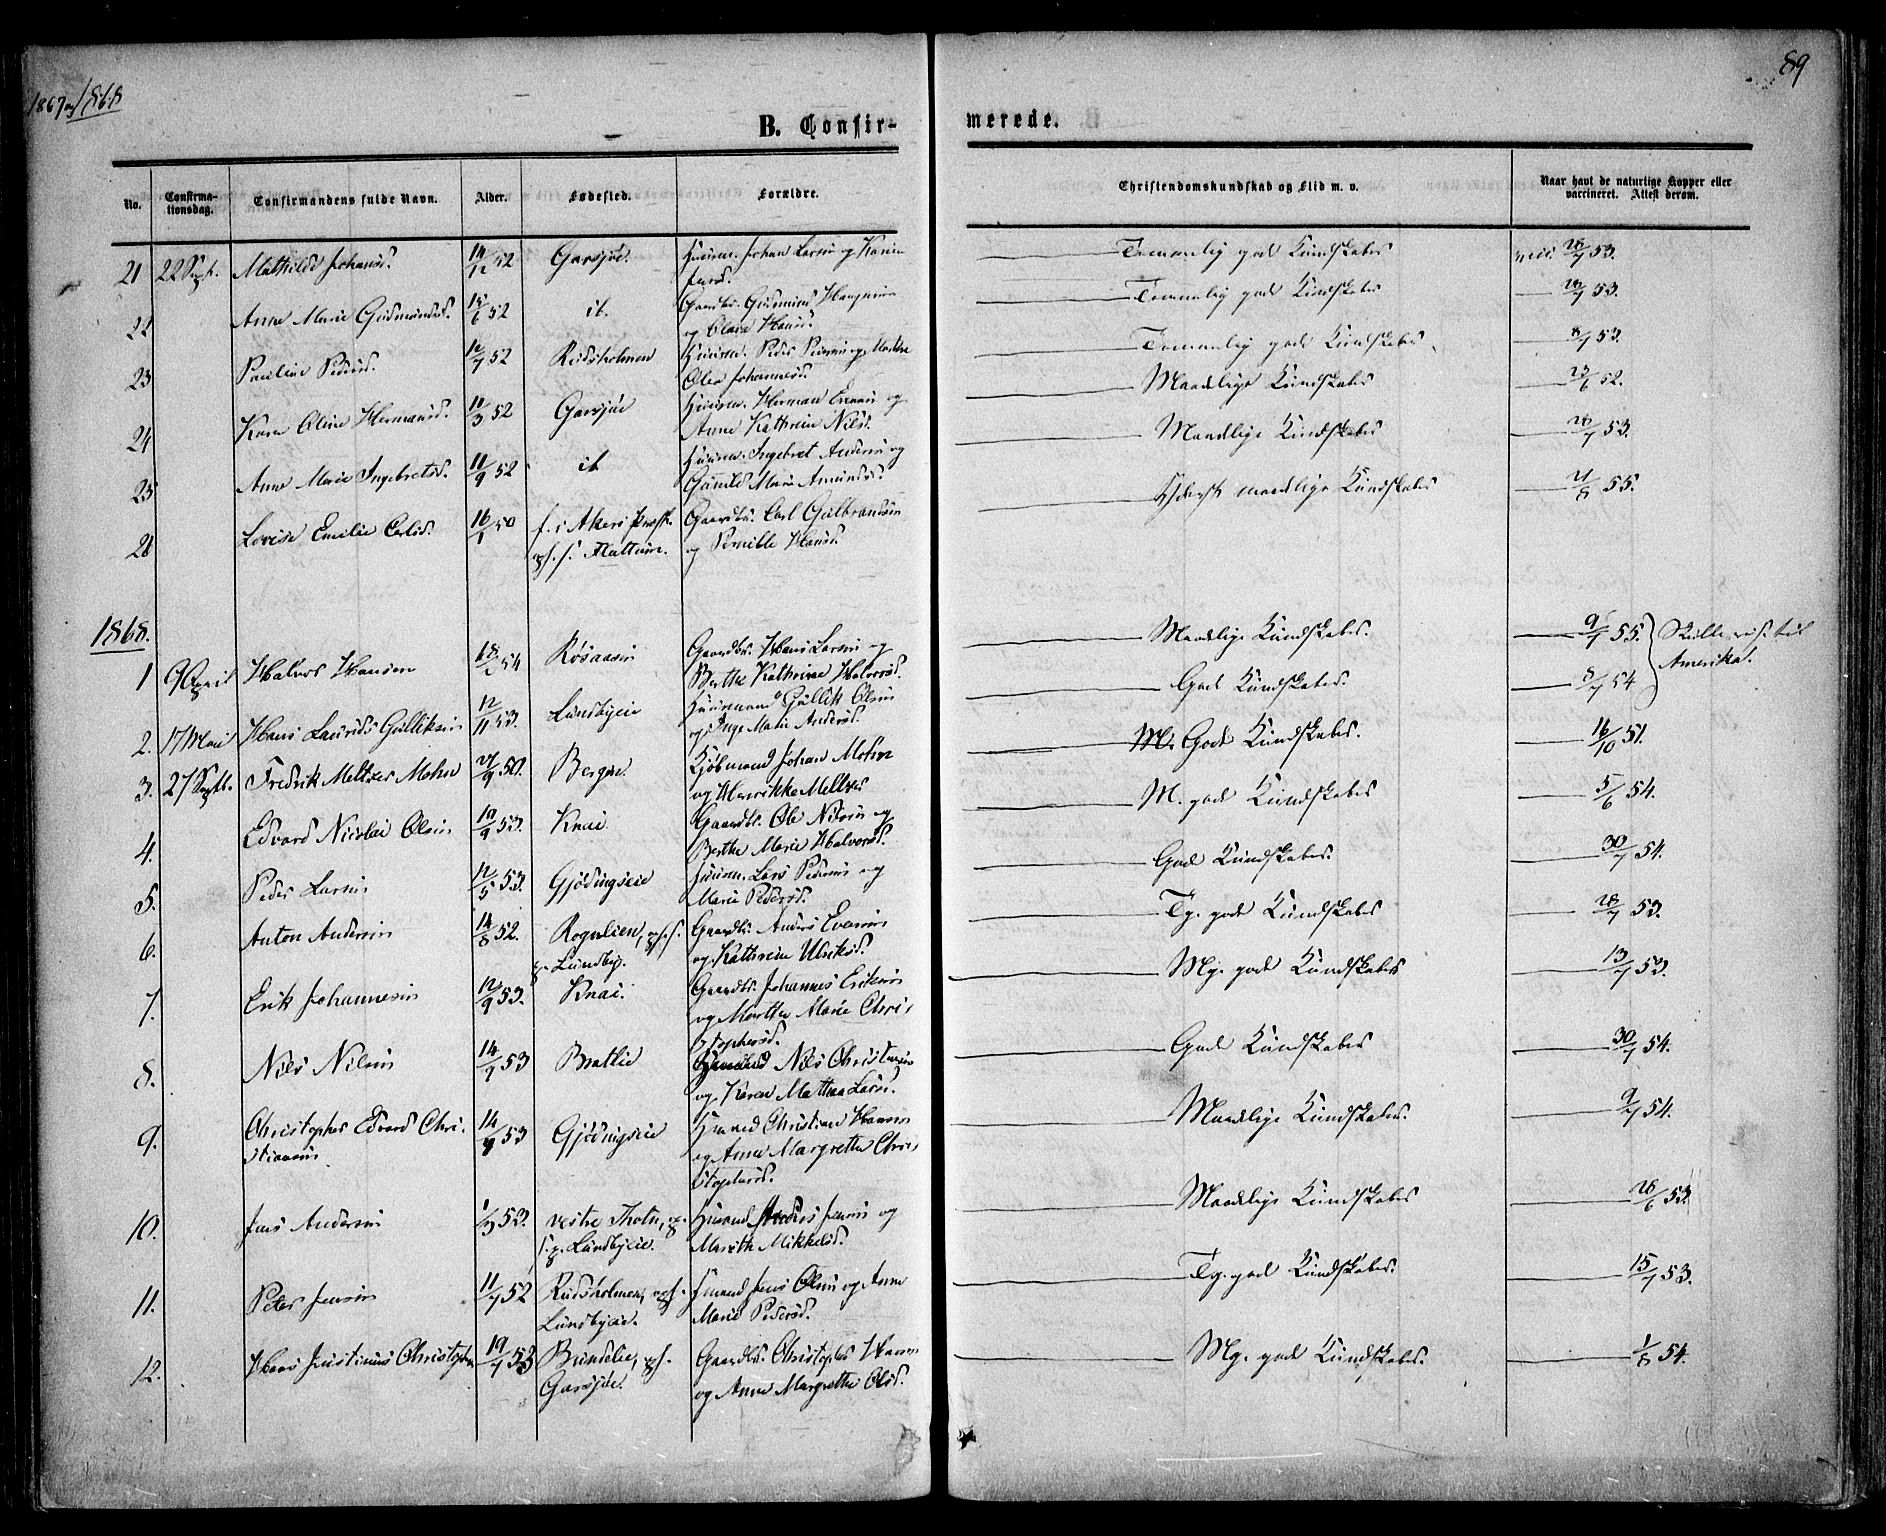 1867 og 1868
89
B. Confir-
merede.
No.
Confirma-
tionsdag.
Confirmandens fulde Navn.
Alder.
Fødested.
Forældre.
Christendomskundskab og Flid m. v.
Naar havt de naturlige Kopper eller
vaccineret. Attest derom.
21 22 Sept. Mathilde Johansd. 14/12 52 Garsjøe. Huusm. Johan Larsen og Karen
Temmelig god Kundskaber 28/7 53.
22 Anne Marie Gudmundsd. 15/6 52 it. Gaardbr. Gudmund
og Olava Hansd.
Temmelig god Kundskaber 53.
23 Pauline Pedersd. 12/7 52 Rudsholmen Huusm. Peder Pedersen og Marthe
Olea Johannesd.
Temmelig gode Kundskaber 8/7 53.
24 Karen Oline Hermansd. 11/3 52 Garsjøe Huusm. Herman og
Anne Kathrine Nilsd.
Maadelige Kundskaber 6 52.
25 Anne Marie Ingebretsd. 11/9 52 it Huusm. Ingebret Andersen og
Gunild Marie Amundsd.
Maadelige Kundskaber 28/7 53.
26 Lovise Emilie Carlsd. 16/1 50 f. i Akers Præstegj.
Gaardbr. Carl Gulbrandsen
og Pernille Hansd.
Yderst maadelige Kundskaber 8 55.
1868.
1 9 April Halvor Hansen 54 Røsaasen Gaardbr. Hans Larsen og
Berthe Kathrine Halvorsd.
Maadelige Kundskaber. 9/7 55. Skulle reise til
Amerika.
2. 17 Mai Hans Laurids Gulliksen 12/11 53. Lundbyeie Huusmand Gullik Olsen
og Inge Marie Andersd.
God Kundskaber. 8/7 54
3. 27 Septb. Fredrik Meltzer Mohn 21/9 50. Bergen. Kjøbmand Johan Mohn
og Henrikke Meltzer
M. Gode Kundskaber. 16/10 51.
4. Edvard Nicolai Olsen 10/9 53. Knai. Gaardbr. Ole Nilsen og
Berthe Marie Halvorsd.
M. gode Kundskaber 5/6 54.
5. Peder Larsen 12/5 53. Gjødingseie Huusm. Lars Pedersen og
Marie Pedersd.
God Kundskaber. 30/7 54.
6. Anton Andersen 14/8 52. Rognlien, opf.
p. Lundby. Gaardbr. Anders Evensen
og Kathrine Ulriksd.
Tg. gode Kundskaber 28/7 53.
7. Erik Johannesen 12/9 53. Knai. Gaardbr. Johannes Eriksen
og Marthe Marie Chri-
stophersd.
Mg. gode Kundskaber 13/7 53.
8. Nils Nilsen 14/9 53 Bratlie Nils Christensen
og Karen Mathea Larsd.
Gode Kundskaber 30/7 54.
9. Christopher Edvard Chri-
stiansen 14/9 53 Gjødingseie Huusmd Christian Hansen
og Anne Margrethe Chri-
stophersd.
Maadelige Kundskaber. 9/7 54.
10. Jens Andersen 1/3 53. vestre Thoten, op-
f. p. Lundbyeie. Anders Jensen og
Marith Mikkelsd.
Maadelige Kundskaber 28/6 53.
11. Peter Jensen 11/7 52 Rudsholmen, opf.
Lundbyeie. Huusmand Jens Olsen og Anne
Marie Pedersd.
Tg. god Kundskaber. 15/7 53.
12. Hans Justinus Christophersen 19/7 53 Brundlie, opf.
Garsjøe. Gaardbr. Christopher Hansen
og Anne Margrethe Olsd.
Mg. gode Kundskaber. 1/8 54.